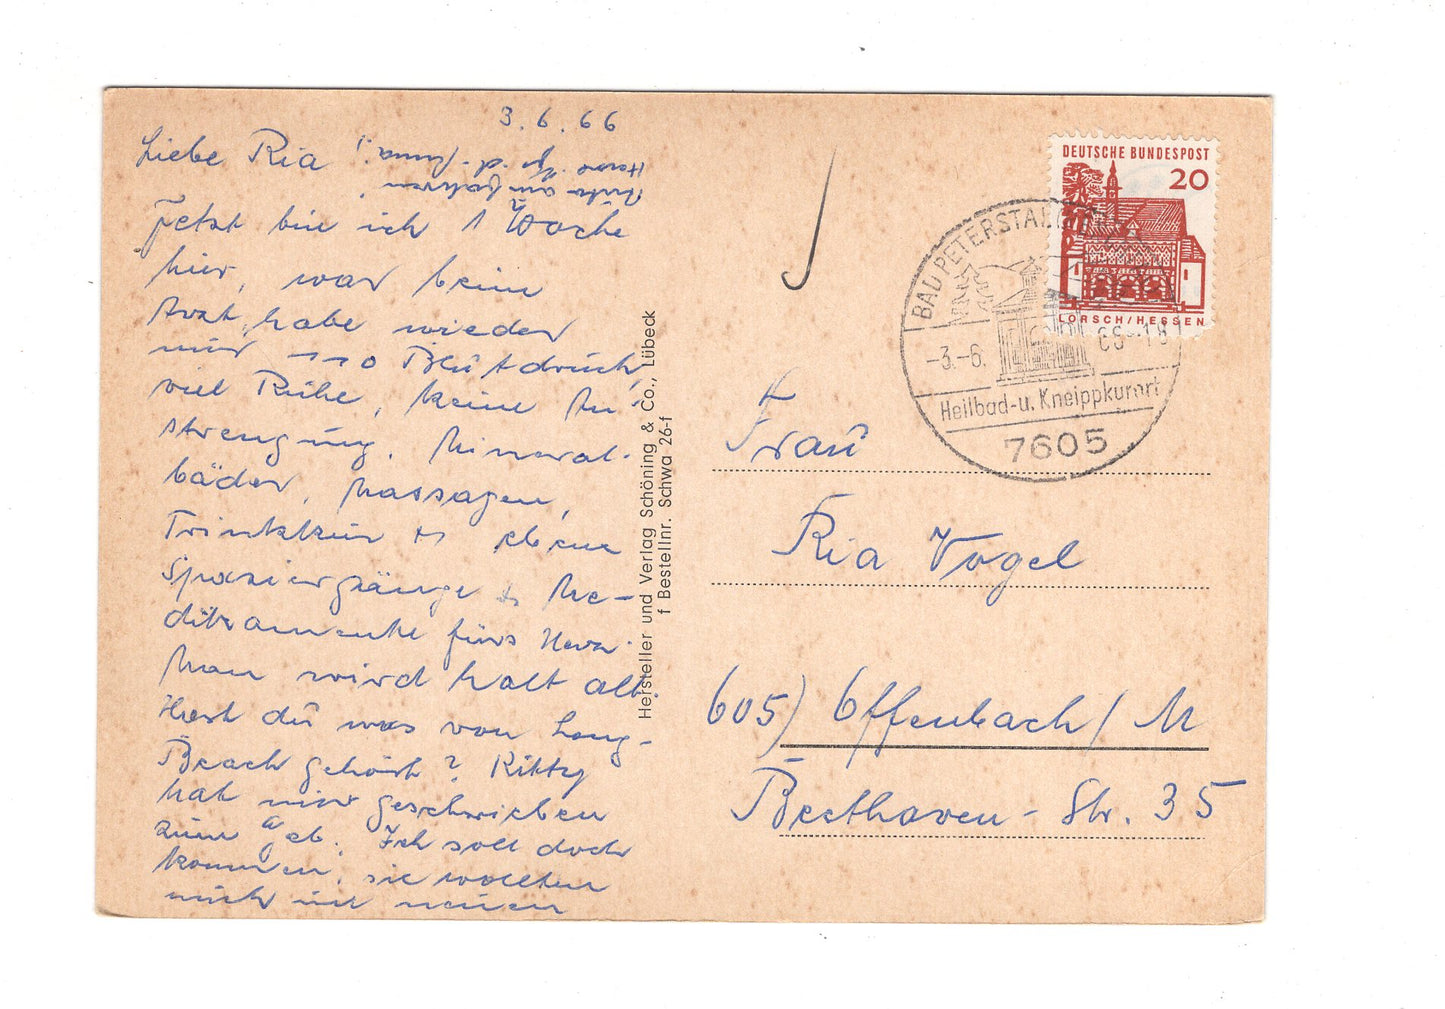 3.6.66
Liebe Ria!
Jetzt bin ich 1 Woche
hier, war beim
Arzt, habe wieder
nur 110 Blutdruck,
viel Ruhe, keine An-
strengung. Mineral-
bäder, Massagen,
Trinkkur & ebene
Spaziergänge & Me-
dikamente fürs Herz.
Man wird halt alt.
Hast du was von Long-
Beach gehört? Kitty
hat mir geschrieben
zum Geb. Ich soll doch
kommen, sie wollten
mich im neuen
Auto am
Gr. d.
Hersteller und Verlag Schöning & Co., Lübeck
f Bestellnr. Schwa 26-f
DEUTSCHE BUNDESPOST
20
LORSCH/HESSEN
BAD PETERSTAL
-3.-6. 66-18
Heilbad-u. Kneippkurort
7605
Frau
Ria Vogel
605) Offenbach/M
Beethoven-Str. 35